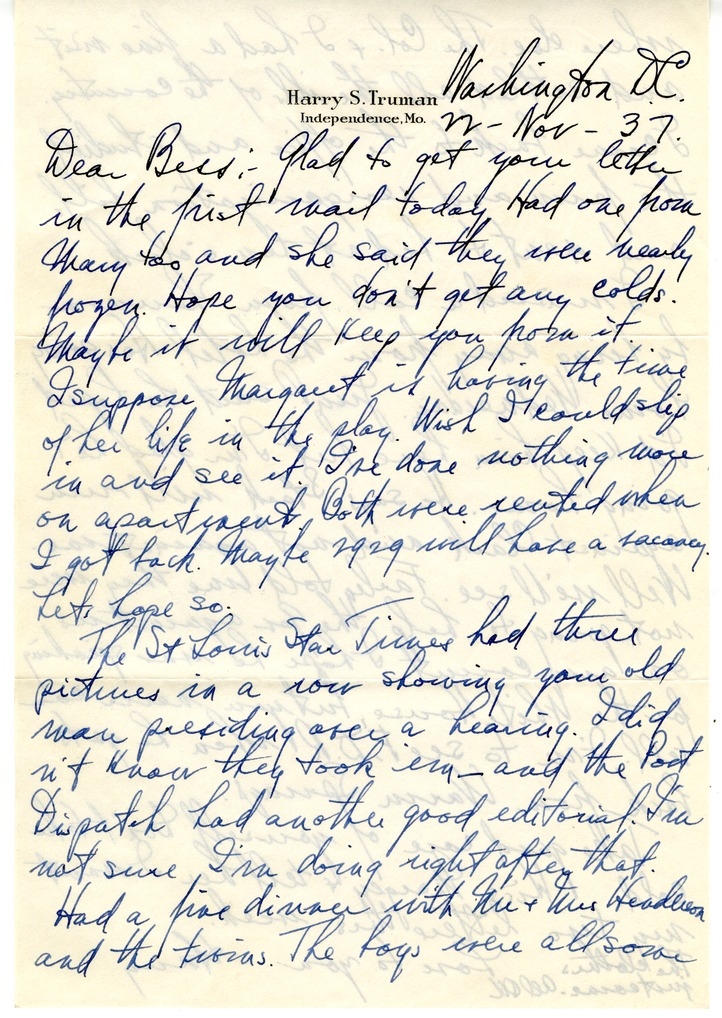 Harry S. Truman
Independence, Mo.
Washington D.C.
22 - Nov - 37.
Dear Bess:- Glad to get your letter
in the first mail today. Had one from
Mary too and she said they were nearly
frozen. Hope you don't get any colds.
Maybe it will keep you from it.
I suppose Margaret is having the time
of her life in the play. Wish I could slip
in and see it. I've done nothing more
on apartment. Both were rented when
I got back. Maybe 2929 will have a vacancy.
Let's hope so.
The St Louis Star Times had three
pictures in a row showing your old
man presiding over a hearing. I did
n't know they took 'em - and the Post
Dispatch had another good editorial. I'm
not sure I'm doing right after that.
Had a fine dinner with Mr & Mrs Henderson
and the twins. The boys were all some